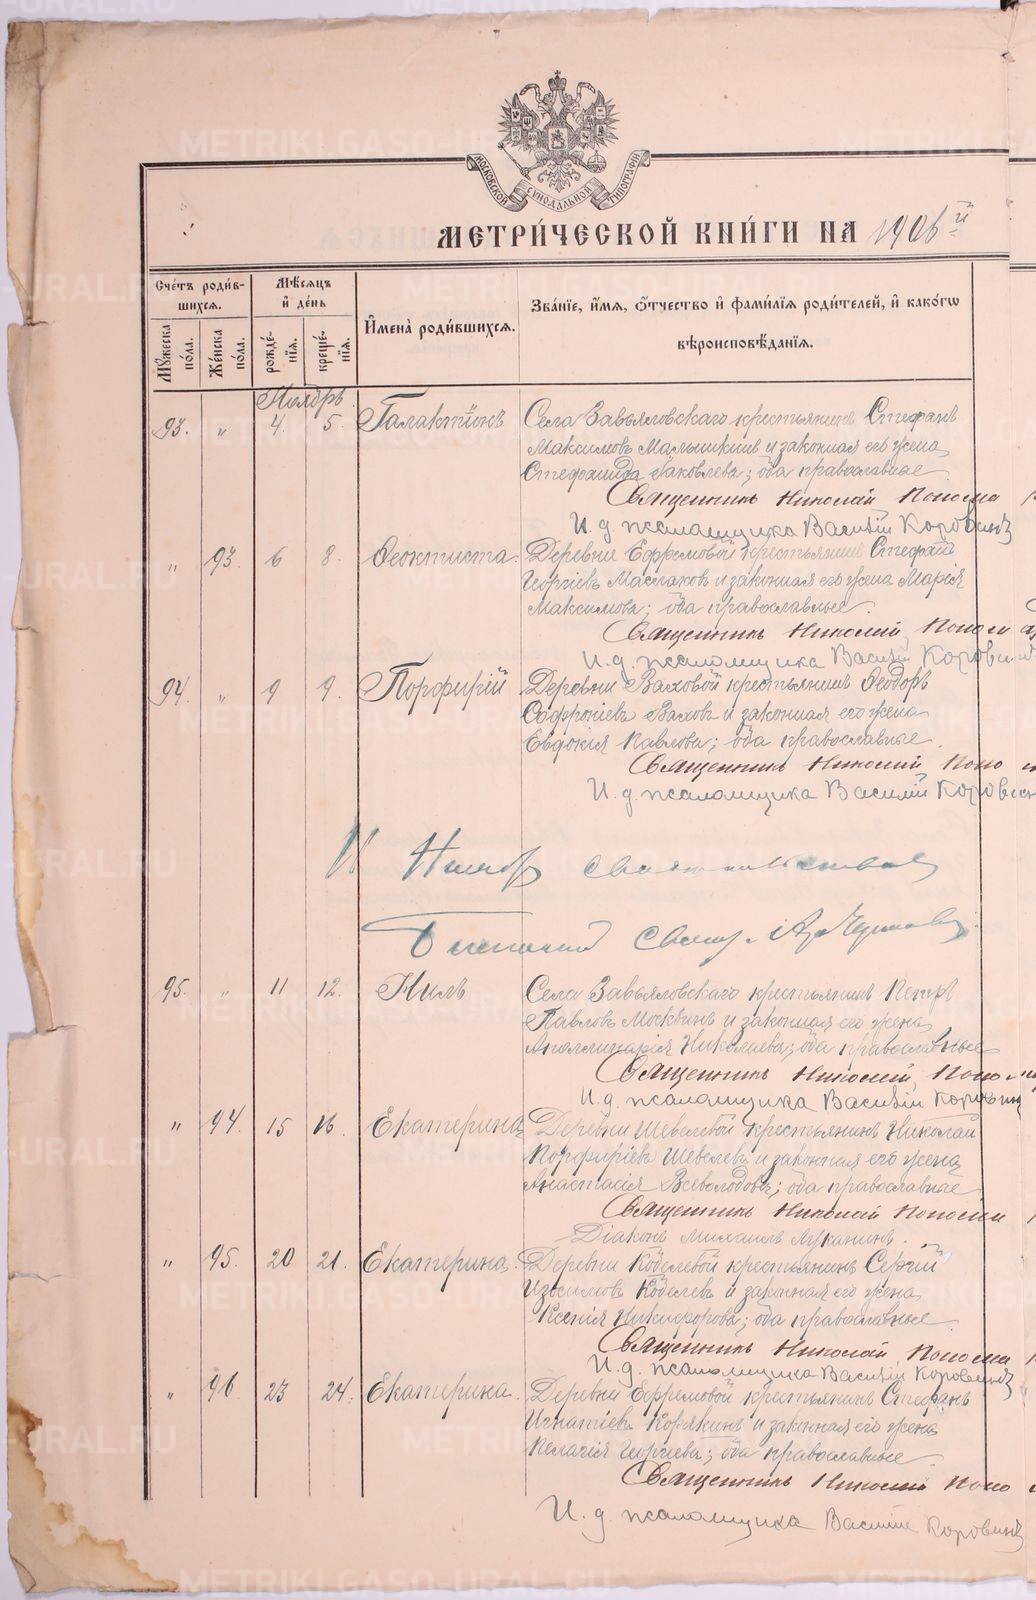 METRIKI.GASO-URAL.RU
МОСКОВСКОЙ СУНОДАЛЬНОЙ ТИПОГРАФІИ
МЕТРИ́ЧЕСКОЙ КНИ́ГИ НА 1906 й
Сче́тъ роди́вшихся.
Мѣ́сяцъ и҆ де́нь
И҆мена̀ роди́вшихся.
Зва́ніе, и҆́мя, ѻ҆́тчество и҆ фами́лія роди́телей, и҆ како́гѡ вѣроисповѣ́данія.
Мꙋ́жеска по́ла.
Же́нска по́ла.
рожде́нія.
креще́нія.
Ноябрь
93. " 4. 5. Галактіонъ Села Завьяловскаго крестьянинъ Стефанъ
Максимовъ Малышкинъ и законная его жена
Стефанида Яковлева; оба православные
Священникъ Николай Понома
И. д. псаломщика Василій Коровинъ
" 93. 6 8. Феоктиста. Деревни Ефремовой крестьянинъ Стефанъ
Георгіевъ Маслаковъ и законная его жена Марія
Максимова; оба православные.
Священникъ Николай Поном
И. д. псаломщика Василій Коровин
94. " 9 9. Порфирій ДеревниВаховой крестьянинъ Феодоръ
Софроніевъ Ваховъ и законная его жена
Евдокія Павлова; оба православные.
Священникъ Николай Поно
И. д. псаломщика Василій Коровин
95. " 11 12. Нилъ Села Завьяловскаго крестьянинъ Петръ
Павловъ Москвинъ и законная его жена
Аполлинарія Николаева; оба православные
Священникъ Николай Поном
И. д. псаломщика Василій Коровин
" 94. 15 16. Екатерина Деревни Шевелевой крестьянинъ Николай
Порфиріевъ Шевелевъ и законная его жена
Анастасія Всеволодова; оба православные
Священникъ Николай Поном
Діаконъ Михаилъ Луканинъ.
" 95. 20 21. Екатерина. Деревни Кобелевой крестьянинъ Сергій
Изосимовъ Кобелевъ и законная его жена
Ксенія Никифорова; оба православные.
Священникъ Николай Понома
И. д. псаломщика Василій Коровинъ
" 96. 23 24. Екатерина. Деревни Ефремовой крестьянинъ Стефанъ
Игнатіевъ Корякинъ и законная его жена
Пелагія Георгіева; оба православные.
Священникъ Николай Поно
И. д. псаломщика Василій Коровинъ